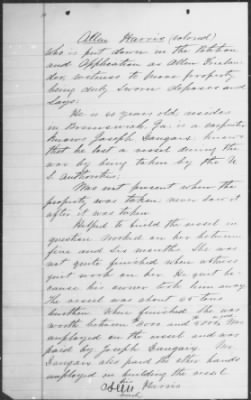 Allen Harris (colored)
who is put down in the Petition
and Application as Allen
witness to prove property
being duly sworn deposes and
says:
He is 60 years old, resides
in Brunswick, Ga. is a carpenter
knows Joseph Dangaix. knows
that he lost a vessel during the
war by being taken by the U
S. Authorities:
Was not present when the
property was taken, never saw it
after it was taken.
Helped to build the vessel in
question. Worked on her between
five and six months. She was
not quite finished when witness
quit work on her. He quit be-
cause his owner took him away
The vessel was about 60 tons
burthen. When finished she was
worth between and Was
employed on the vessel and was
paid by Joseph Dangaix. Mr
Dangaix also paid the other hands
employed in building the vessel
his
Allen Harris
mark